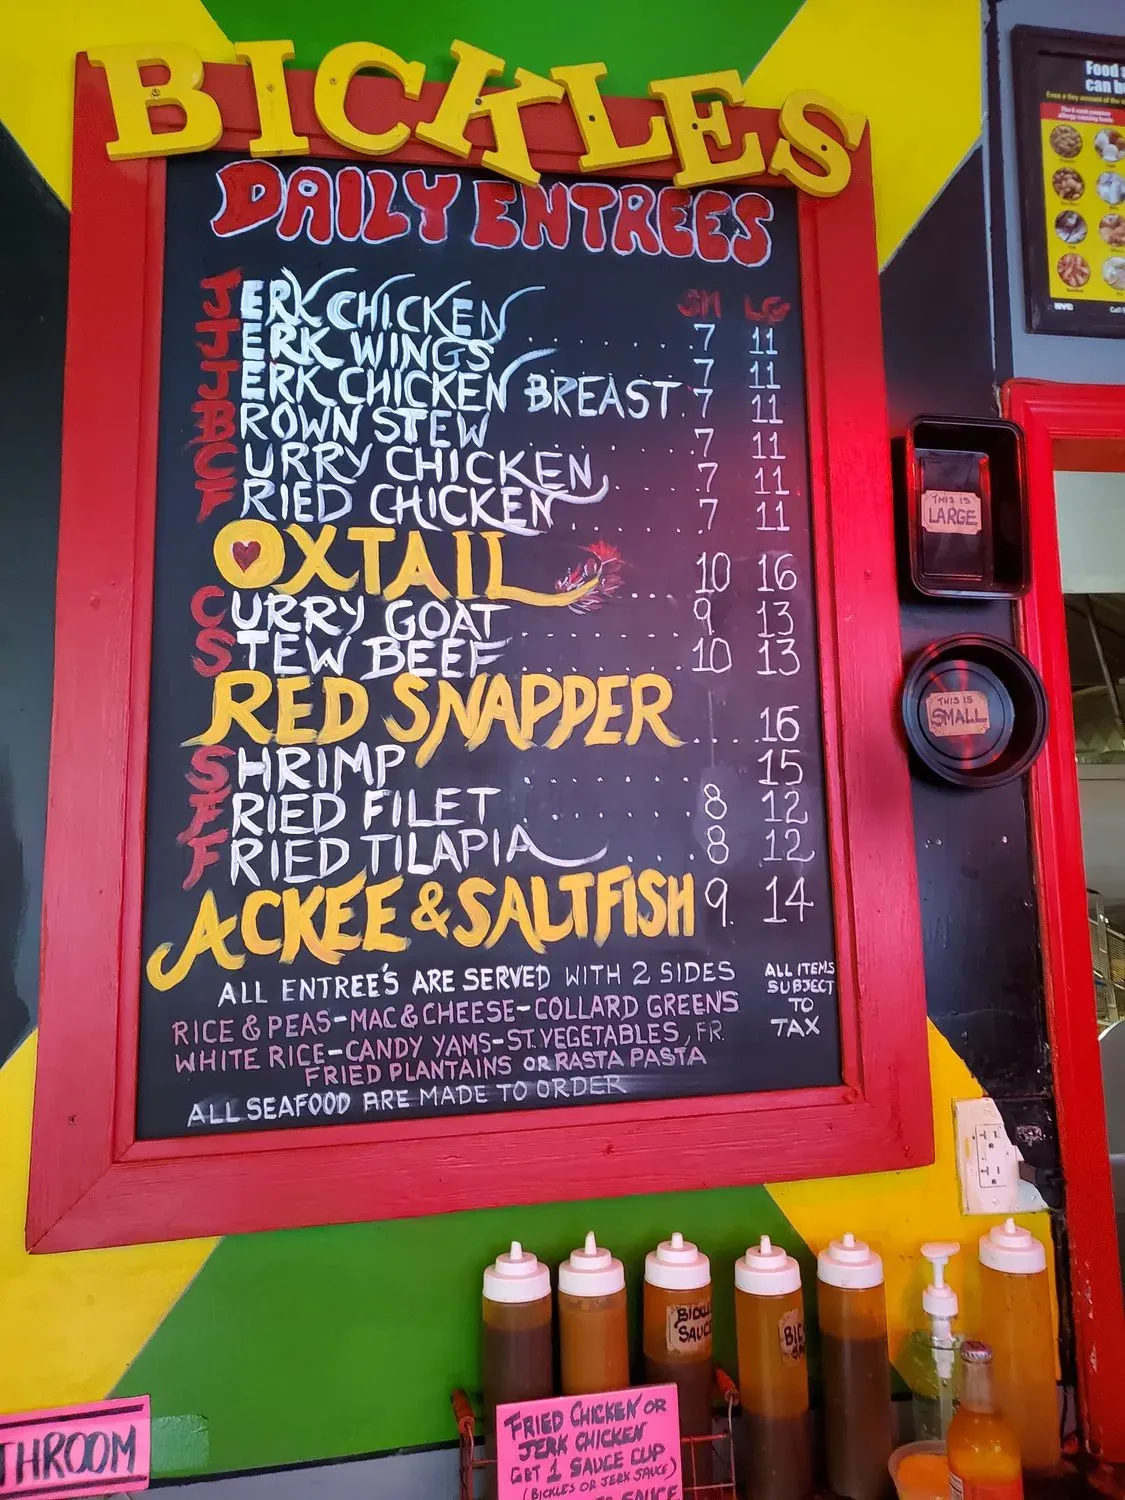 BICKLES
DAILY ENTREES
SM LG
JERK CHICKEN . . . . . . . 7 11
JERK WINGS 7 11
JERK CHICKEN BREAST . 7 11
BROWN STEW . . . . . 7 11
CURRY CHICKEN . . . . 7 11
FRIED CHICKEN . . . . . 7 11
OXTAIL . . . 10 16
CURRY GOAT . . . . . . . 9 13
STEW BEEF . . . . . . . 10 13
RED SNAPPER . . . . 16
SHRIMP . . . . . . . 15
FRIED FILET . . . . . . . 8 12
FRIED TILAPIA . . . . 8 12
ACKEE & SALTFISH 9. 14
ALL ENTREE'S ARE SERVED WITH 2 SIDES
RICE & PEAS-MAC & CHEESE-COLLARD GREENS
WHITE RICE-CANDY YAMS-ST. VEGETABLES, FR.
FRIED PLANTAINS OR RASTA PASTA
ALL SEAFOOD ARE MADE TO ORDER
ALL ITEMS
SUBJECT
TO
TAX
THIS IS
LARGE
THIS IS
SMALL
Food
can b
NYC
BICKL
SAUC
BIC
THROOM
FRIED CHICKEN OR
JERK CHICKEN
GET 1 SAUCE CUP
(BICKLES OR JERK SAUCE)
SAUCE